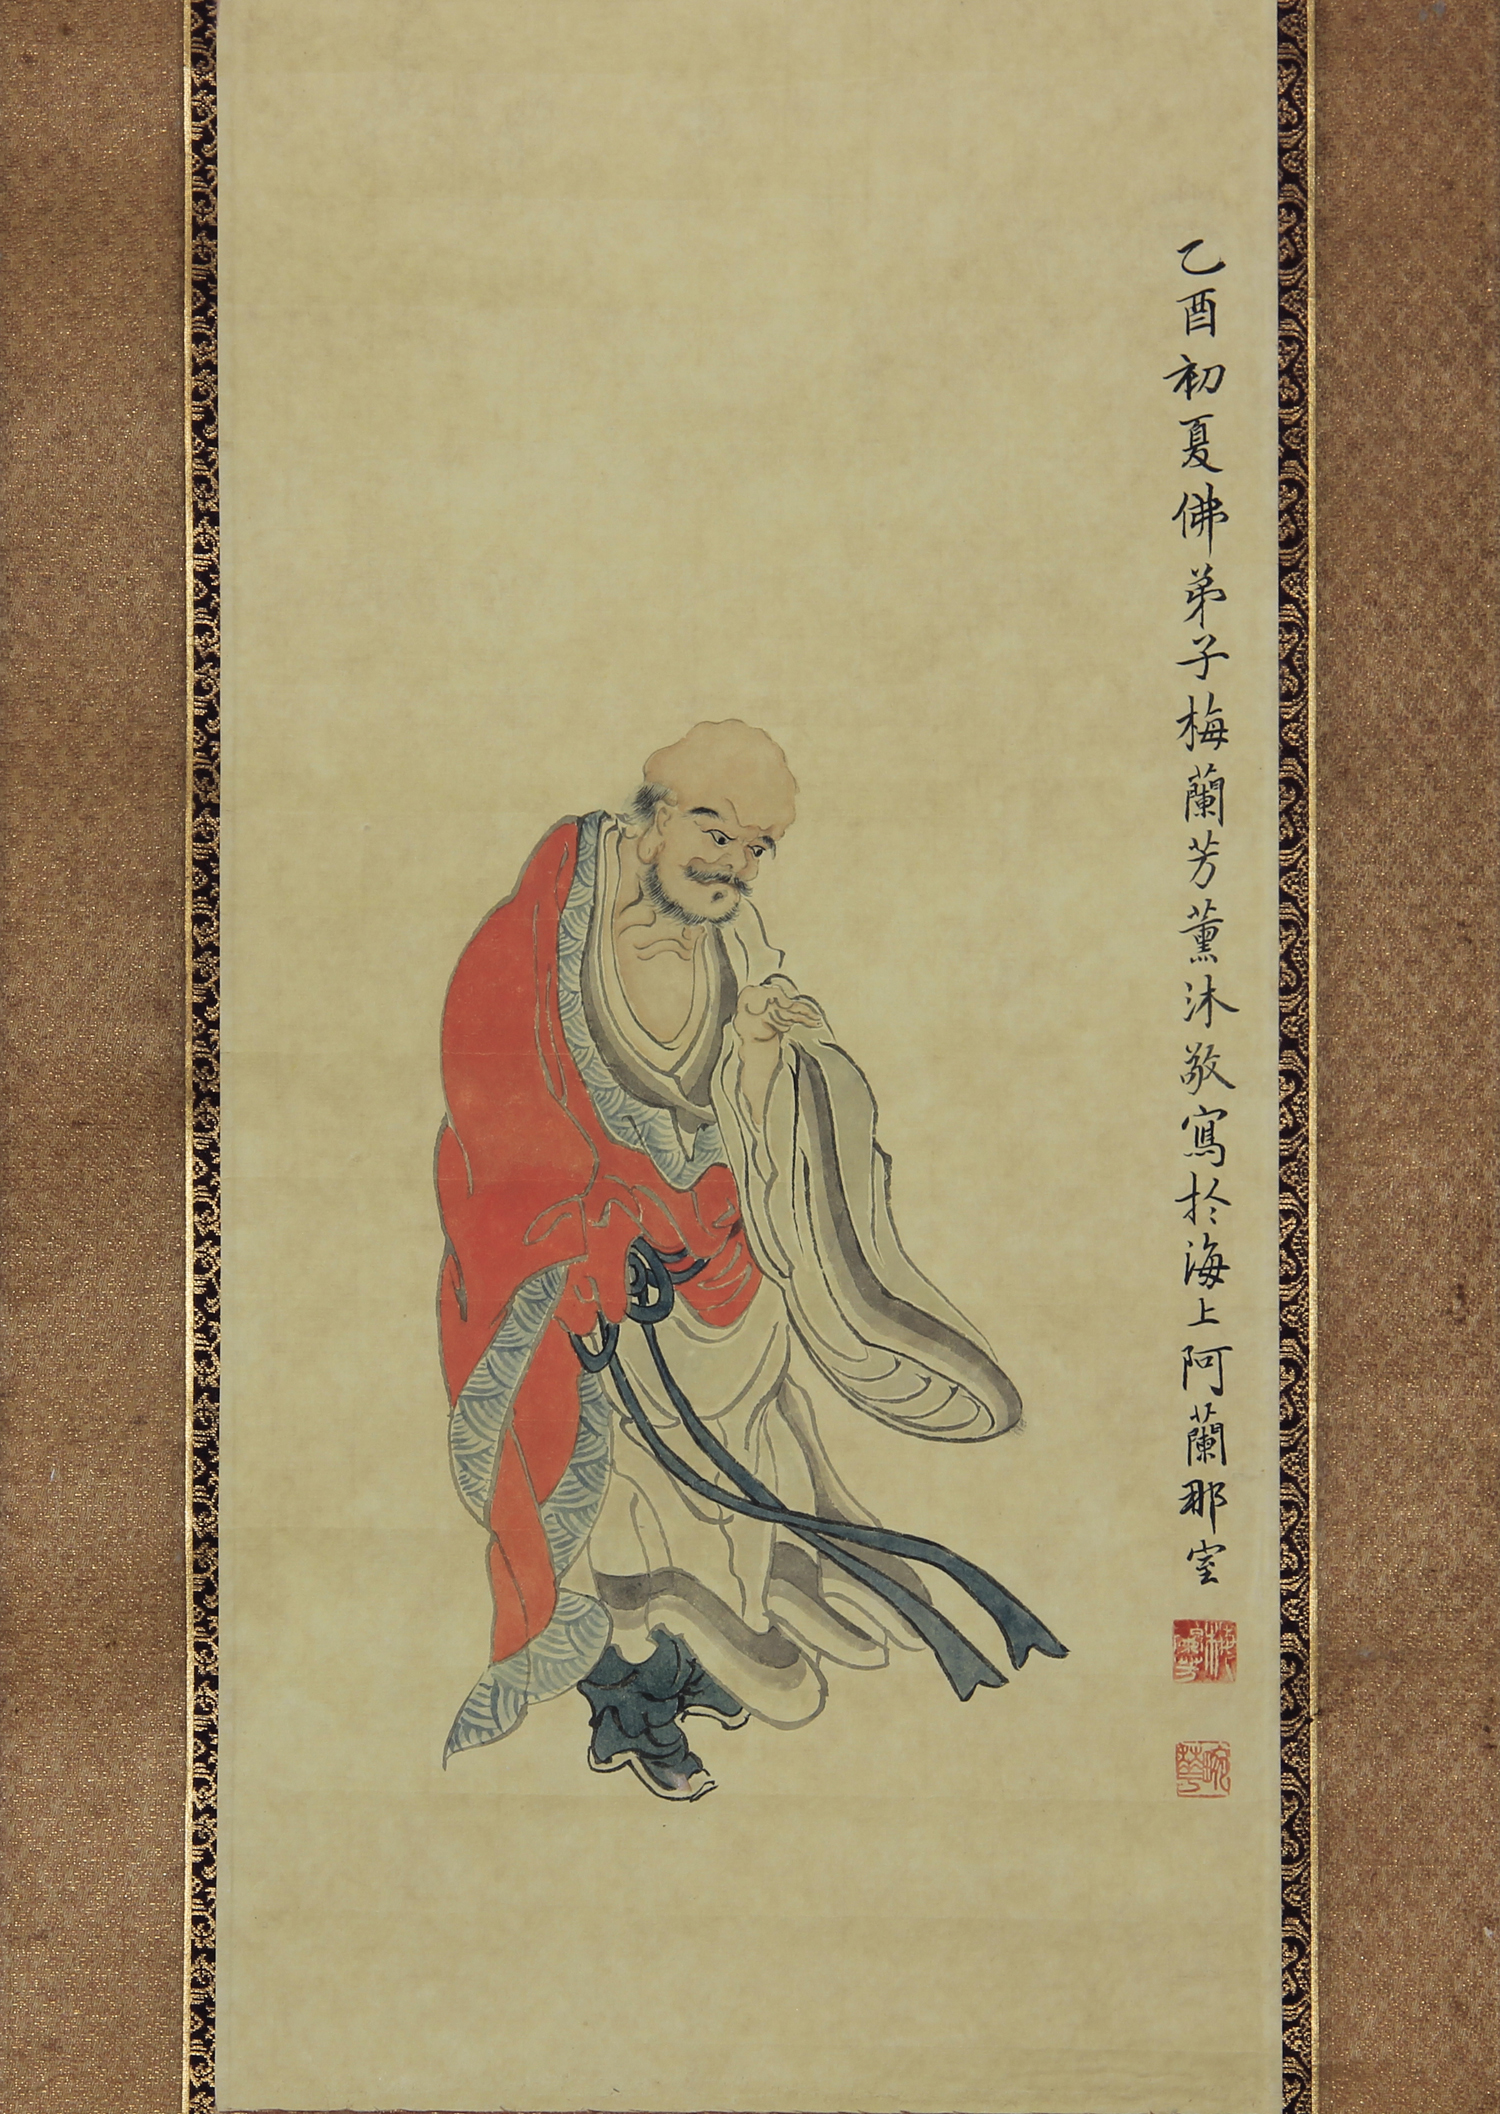 乙酉初夏佛弟子梅蘭芳薰沐敬寫於海上阿蘭那室
梅蘭芳
畹華